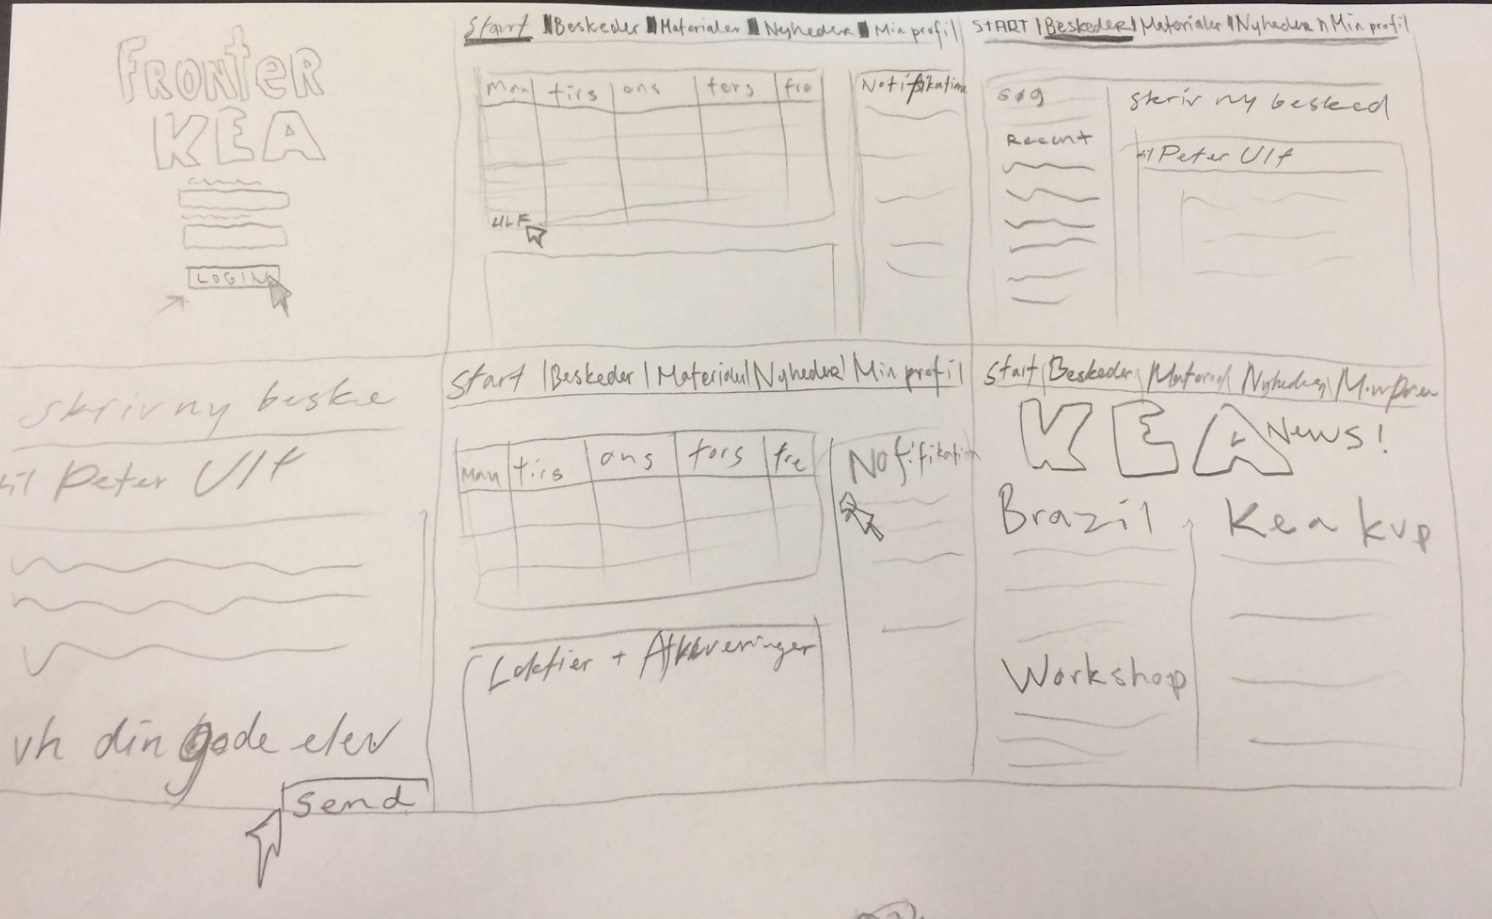 FRONTER
KEA
LOGIN
Start Beskeder Materialer Nyheder Min profil
Man tirs ons tors fre
Notifikation
ULF
START | Beskeder | Materialer | Nyheder | Min profil
Søg
Recent
Skriv ny besked
til Peter Ulf
Skriv ny beske
til Peter Ulf
vh din gode elev
Send
Start | Beskeder | Materialer | Nyheder | Min profil
Man tirs ons tors fre
Notifikation
Lektier + Afleveringer
Start | Beskeder | Nyheder |
KEA News!
Brazil
Kea kup
Workshop